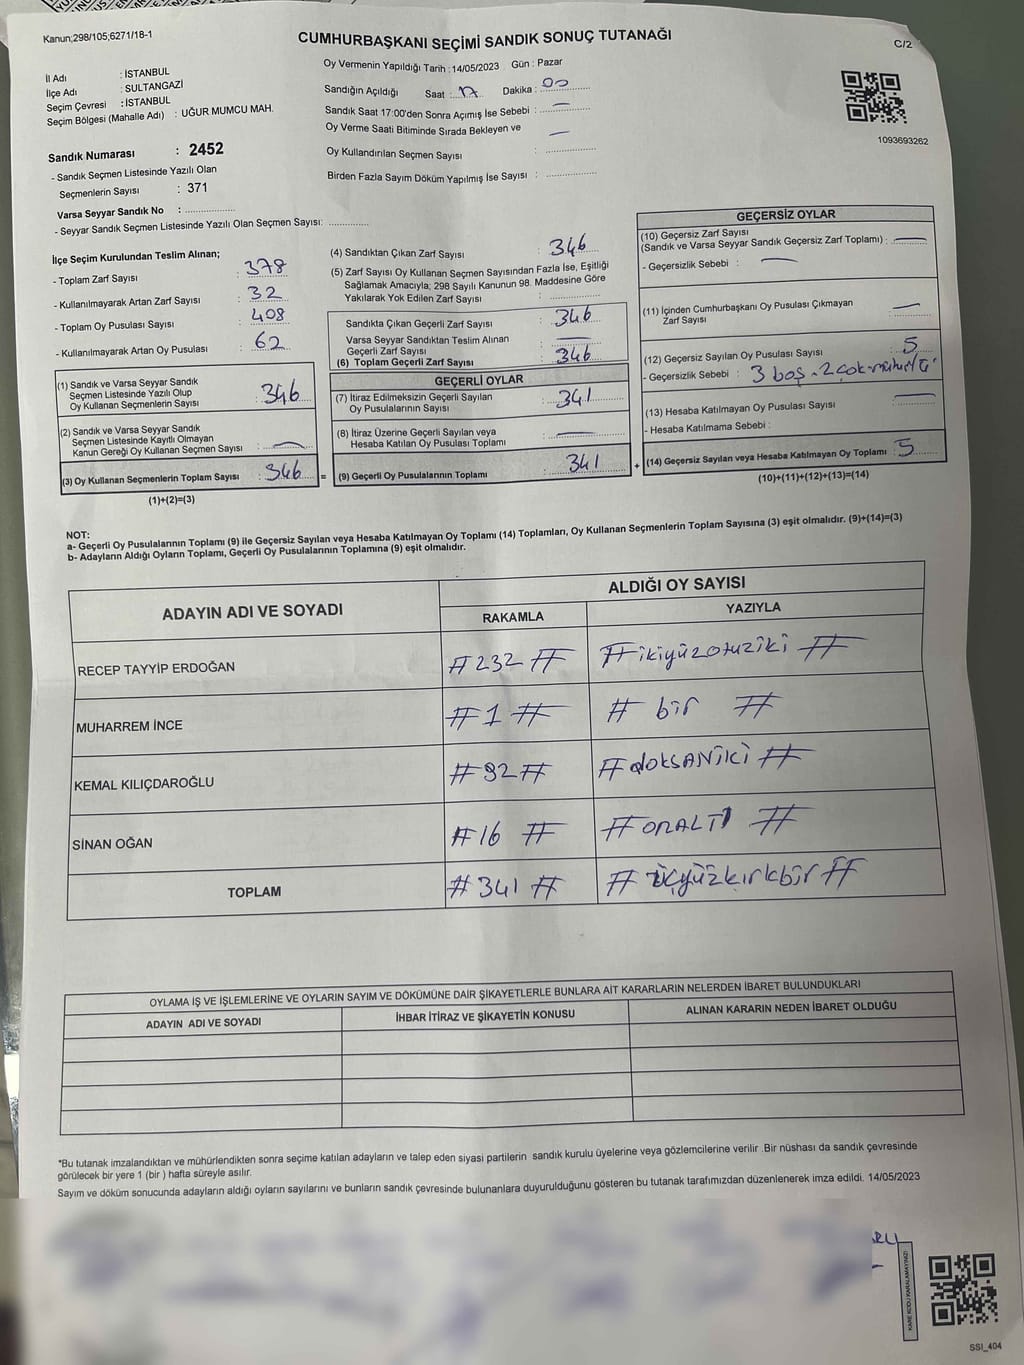 Kanun;298/105;6271/18-1
CUMHURBAŞKANI SEÇİMİ SANDIK SONUÇ TUTANAĞI
C/2
İl Adı : İSTANBUL
İlçe Adı : SULTANGAZİ
Seçim Çevresi : İSTANBUL
Seçim Bölgesi (Mahalle Adı) : UĞUR MUMCU MAH.
Oy Vermenin Yapıldığı Tarih : 14/05/2023 Gün : Pazar
Sandığın Açıldığı Saat : 17 Dakika : 00
Sandık Saat 17:00'den Sonra Açımış İse Sebebi : —
Oy Verme Saati Bitiminde Sırada Bekleyen ve
Oy Kullandırılan Seçmen Sayısı : —
Birden Fazla Sayım Döküm Yapılmış İse Sayısı :
1093693262
Sandık Numarası : 2452
- Sandık Seçmen Listesinde Yazılı Olan
Seçmenlerin Sayısı : 371
Varsa Seyyar Sandık No :
- Seyyar Sandık Seçmen Listesinde Yazılı Olan Seçmen Sayısı:
İlçe Seçim Kurulundan Teslim Alınan;
- Toplam Zarf Sayısı : 378
- Kullanılmayarak Artan Zarf Sayısı : 32
- Toplam Oy Pusulası Sayısı : 408
- Kullanılmayarak Artan Oy Pusulası : 62
(1) Sandık ve Varsa Seyyar Sandık
Seçmen Listesinde Yazılı Olup
Oy Kullanan Seçmenlerin Sayısı : 346
(2) Sandık ve Varsa Seyyar Sandık
Seçmen Listesinde Kayıtlı Olmayan
Kanun Gereği Oy Kullanan Seçmen Sayısı : —
(3) Oy Kullanan Seçmenlerin Toplam Sayısı : 346 =
(1)+(2)=(3)
(4) Sandıktan Çıkan Zarf Sayısı : 346
(5) Zarf Sayısı Oy Kullanan Seçmen Sayısından Fazla İse, Eşitliği
Sağlamak Amacıyla; 298 Sayılı Kanunun 98. Maddesine Göre
Yakılarak Yok Edilen Zarf Sayısı :
Sandıkta Çıkan Geçerli Zarf Sayısı : 346
Varsa Seyyar Sandıktan Teslim Alınan
Geçerli Zarf Sayısı : —
(6) Toplam Geçerli Zarf Sayısı : 346
GEÇERLİ OYLAR
(7) İtiraz Edilmeksizin Geçerli Sayılan
Oy Pusulasının Sayısı : 341
(8) İtiraz Üzerine Geçerli Sayılan veya
Hesaba Katılan Oy Pusulası Toplamı : —
(9) Geçerli Oy Pusulalarının Toplamı : 341 +
GEÇERSİZ OYLAR
(10) Geçersiz Zarf Sayısı
(Sandık ve Varsa Seyyar Sandık Geçersiz Zarf Toplamı) : —
- Geçersizlik Sebebi : —
(11) İçinden Cumhurbaşkanı Oy Pusulası Çıkmayan
Zarf Sayısı : —
(12) Geçersiz Sayılan Oy Pusulası Sayısı : 5
- Geçersizlik Sebebi : 3 boş - 2 çok mühürlü
(13) Hesaba Katılmayan Oy Pusulası Sayısı : —
- Hesaba Katılmama Sebebi :
(14) Geçersiz Sayılan veya Hesaba Katılmayan Oy Toplamı : 5
(10)+(11)+(12)+(13)=(14)
NOT:
a- Geçerli Oy Pusulalarının Toplamı (9) ile Geçersiz Sayılan veya Hesaba Katılmayan Oy Toplamı (14) Toplamları, Oy Kullanan Seçmenlerin Toplam Sayısına (3) eşit olmalıdır. (9)+(14)=(3)
b- Adayların Aldığı Oyların Toplamı, Geçerli Oy Pusulalarının Toplamına (9) eşit olmalıdır.
ADAYIN ADI VE SOYADI ALDIĞI OY SAYISI
RAKAMLA YAZIYLA
RECEP TAYYİP ERDOĞAN #232# #ikiyüzotuziki#
MUHARREM İNCE #1# # bir #
KEMAL KILIÇDAROĞLU #92# #doksaniki#
SİNAN OĞAN #16# #ONALTI#
TOPLAM #341# #üçyüzkırkbir#
OYLAMA İŞ VE İŞLEMLERİNE VE OYLARIN SAYIM VE DÖKÜMÜNE DAİR ŞİKAYETLERLE BUNLARA AİT KARARLARIN NELERDEN İBARET BULUNDUKLARI
ADAYIN ADI VE SOYADI İHBAR İTİRAZ VE ŞİKAYETİN KONUSU ALINAN KARARIN NEDEN İBARET OLDUĞU
*Bu tutanak imzalandıktan ve mühürlendikten sonra seçime katılan adayların ve talep eden siyasi partilerin sandık kurulu üyelerine veya gözlemcilerine verilir .Bir nüshası da sandık çevresinde
görülecek bir yere 1 (bir ) hafta süreyle asılır.
Sayım ve döküm sonucunda adayların aldığı oyların sayılarını ve bunların sandık çevresinde bulunanlara duyurulduğunu gösteren bu tutanak tarafımızdan düzenlenerek imza edildi. 14/05/2023
KARE KODU KARALAMAYINIZ!
SSI_404